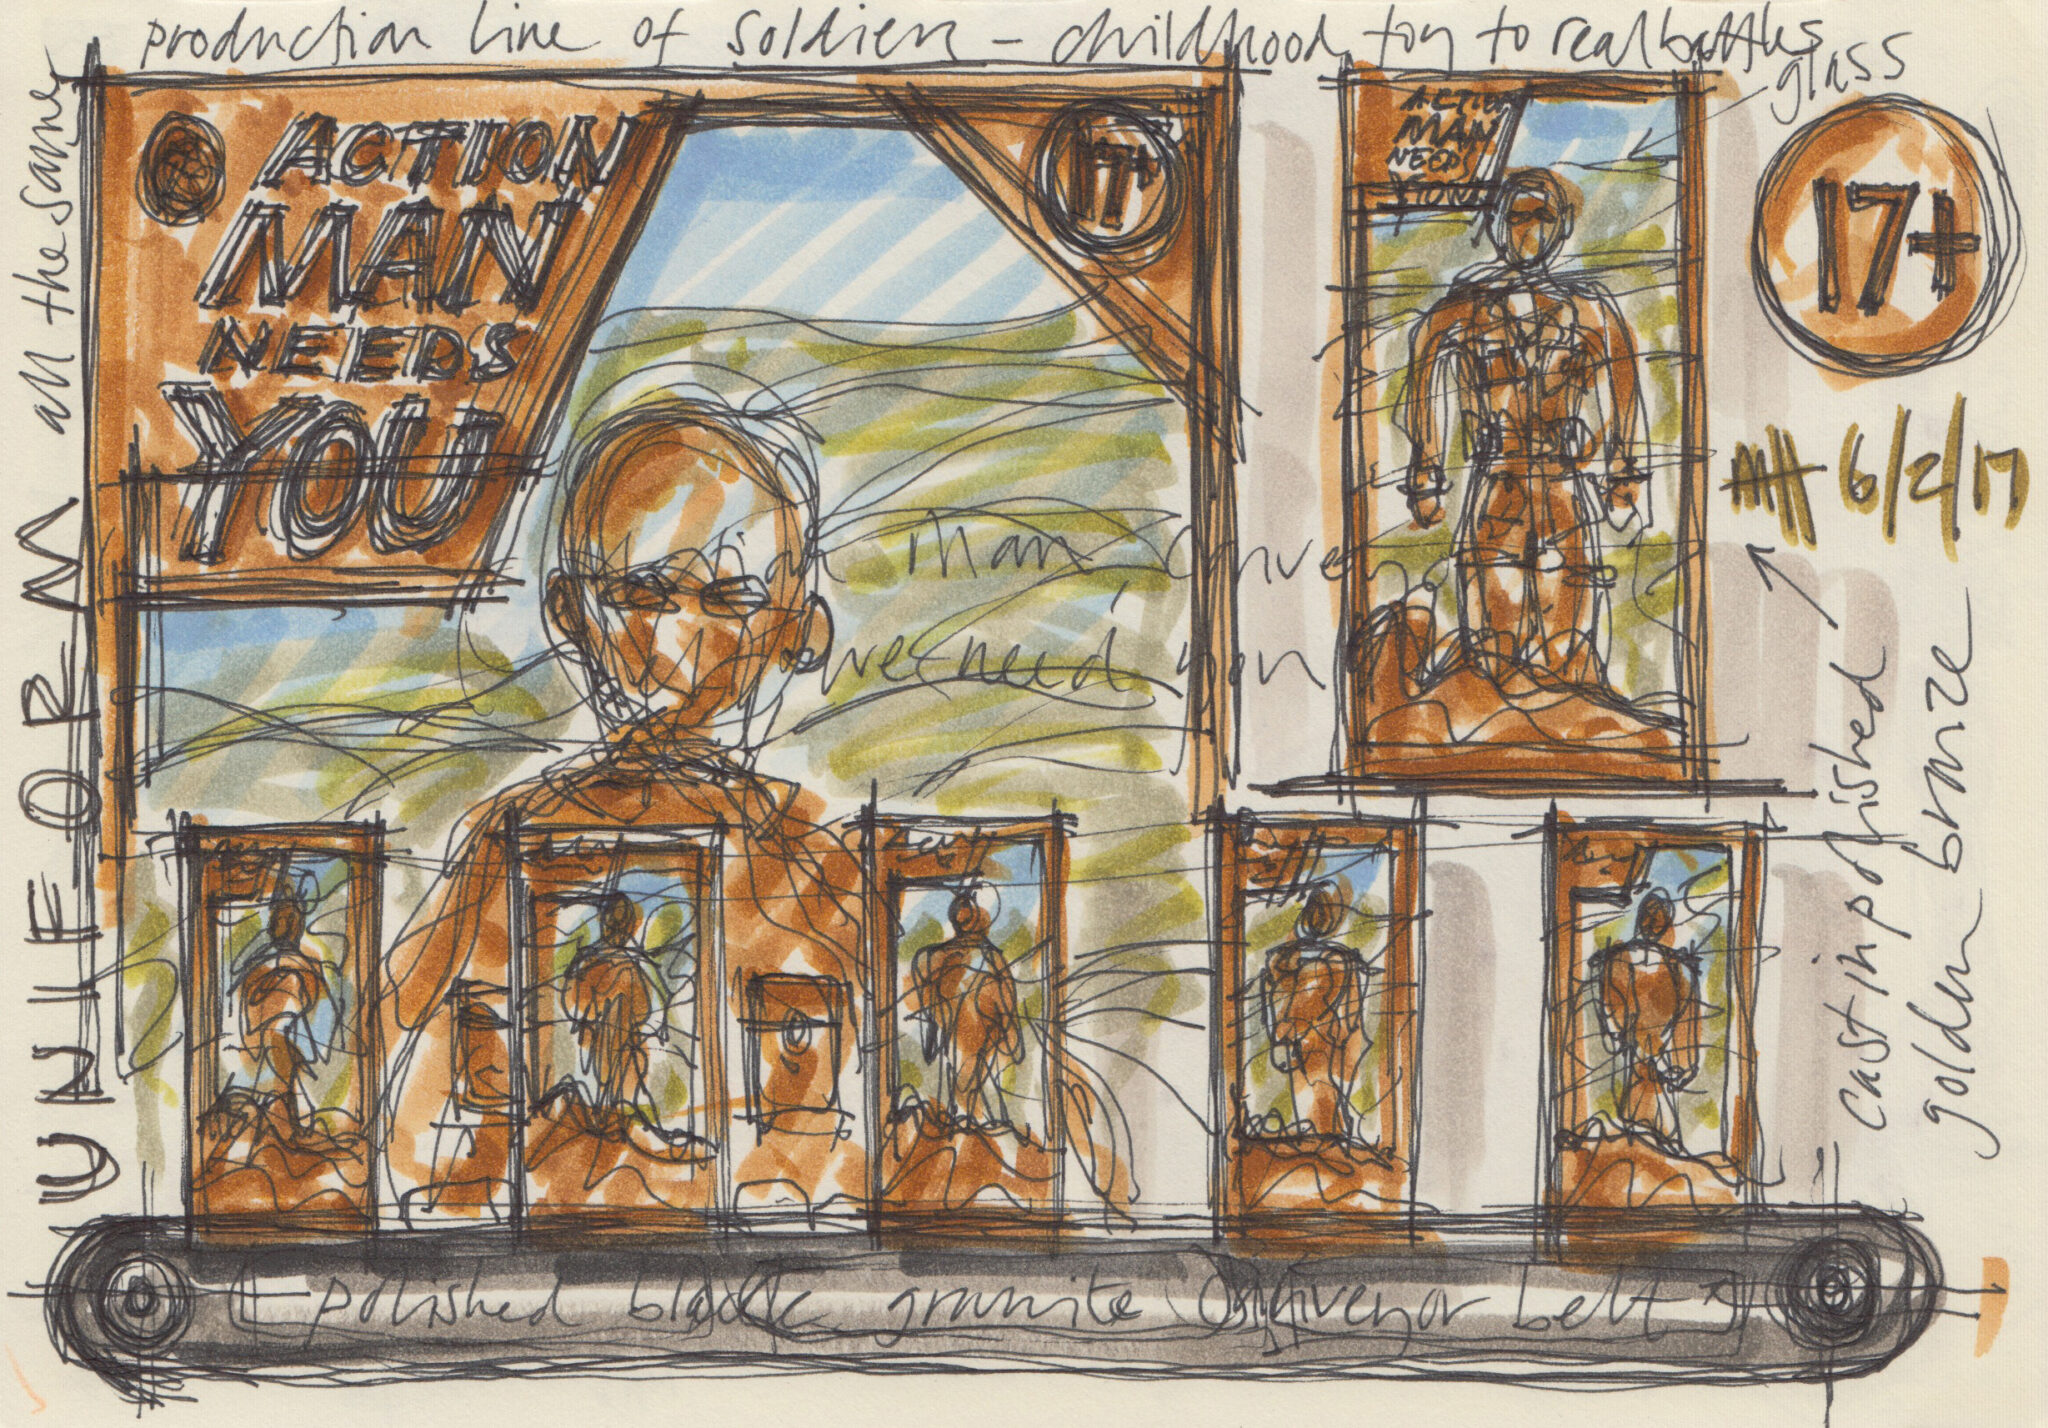 production line of soldiers – childhood toy to real battles
glass
all the same
UNIFORM
ACTION
MAN
NEEDS
YOU
17+
ACTION
MAN
NEEDS
YOU
17+
6/2/17
Man
we need you
cast in polished
golden bronze
polished black granite conveyor belt